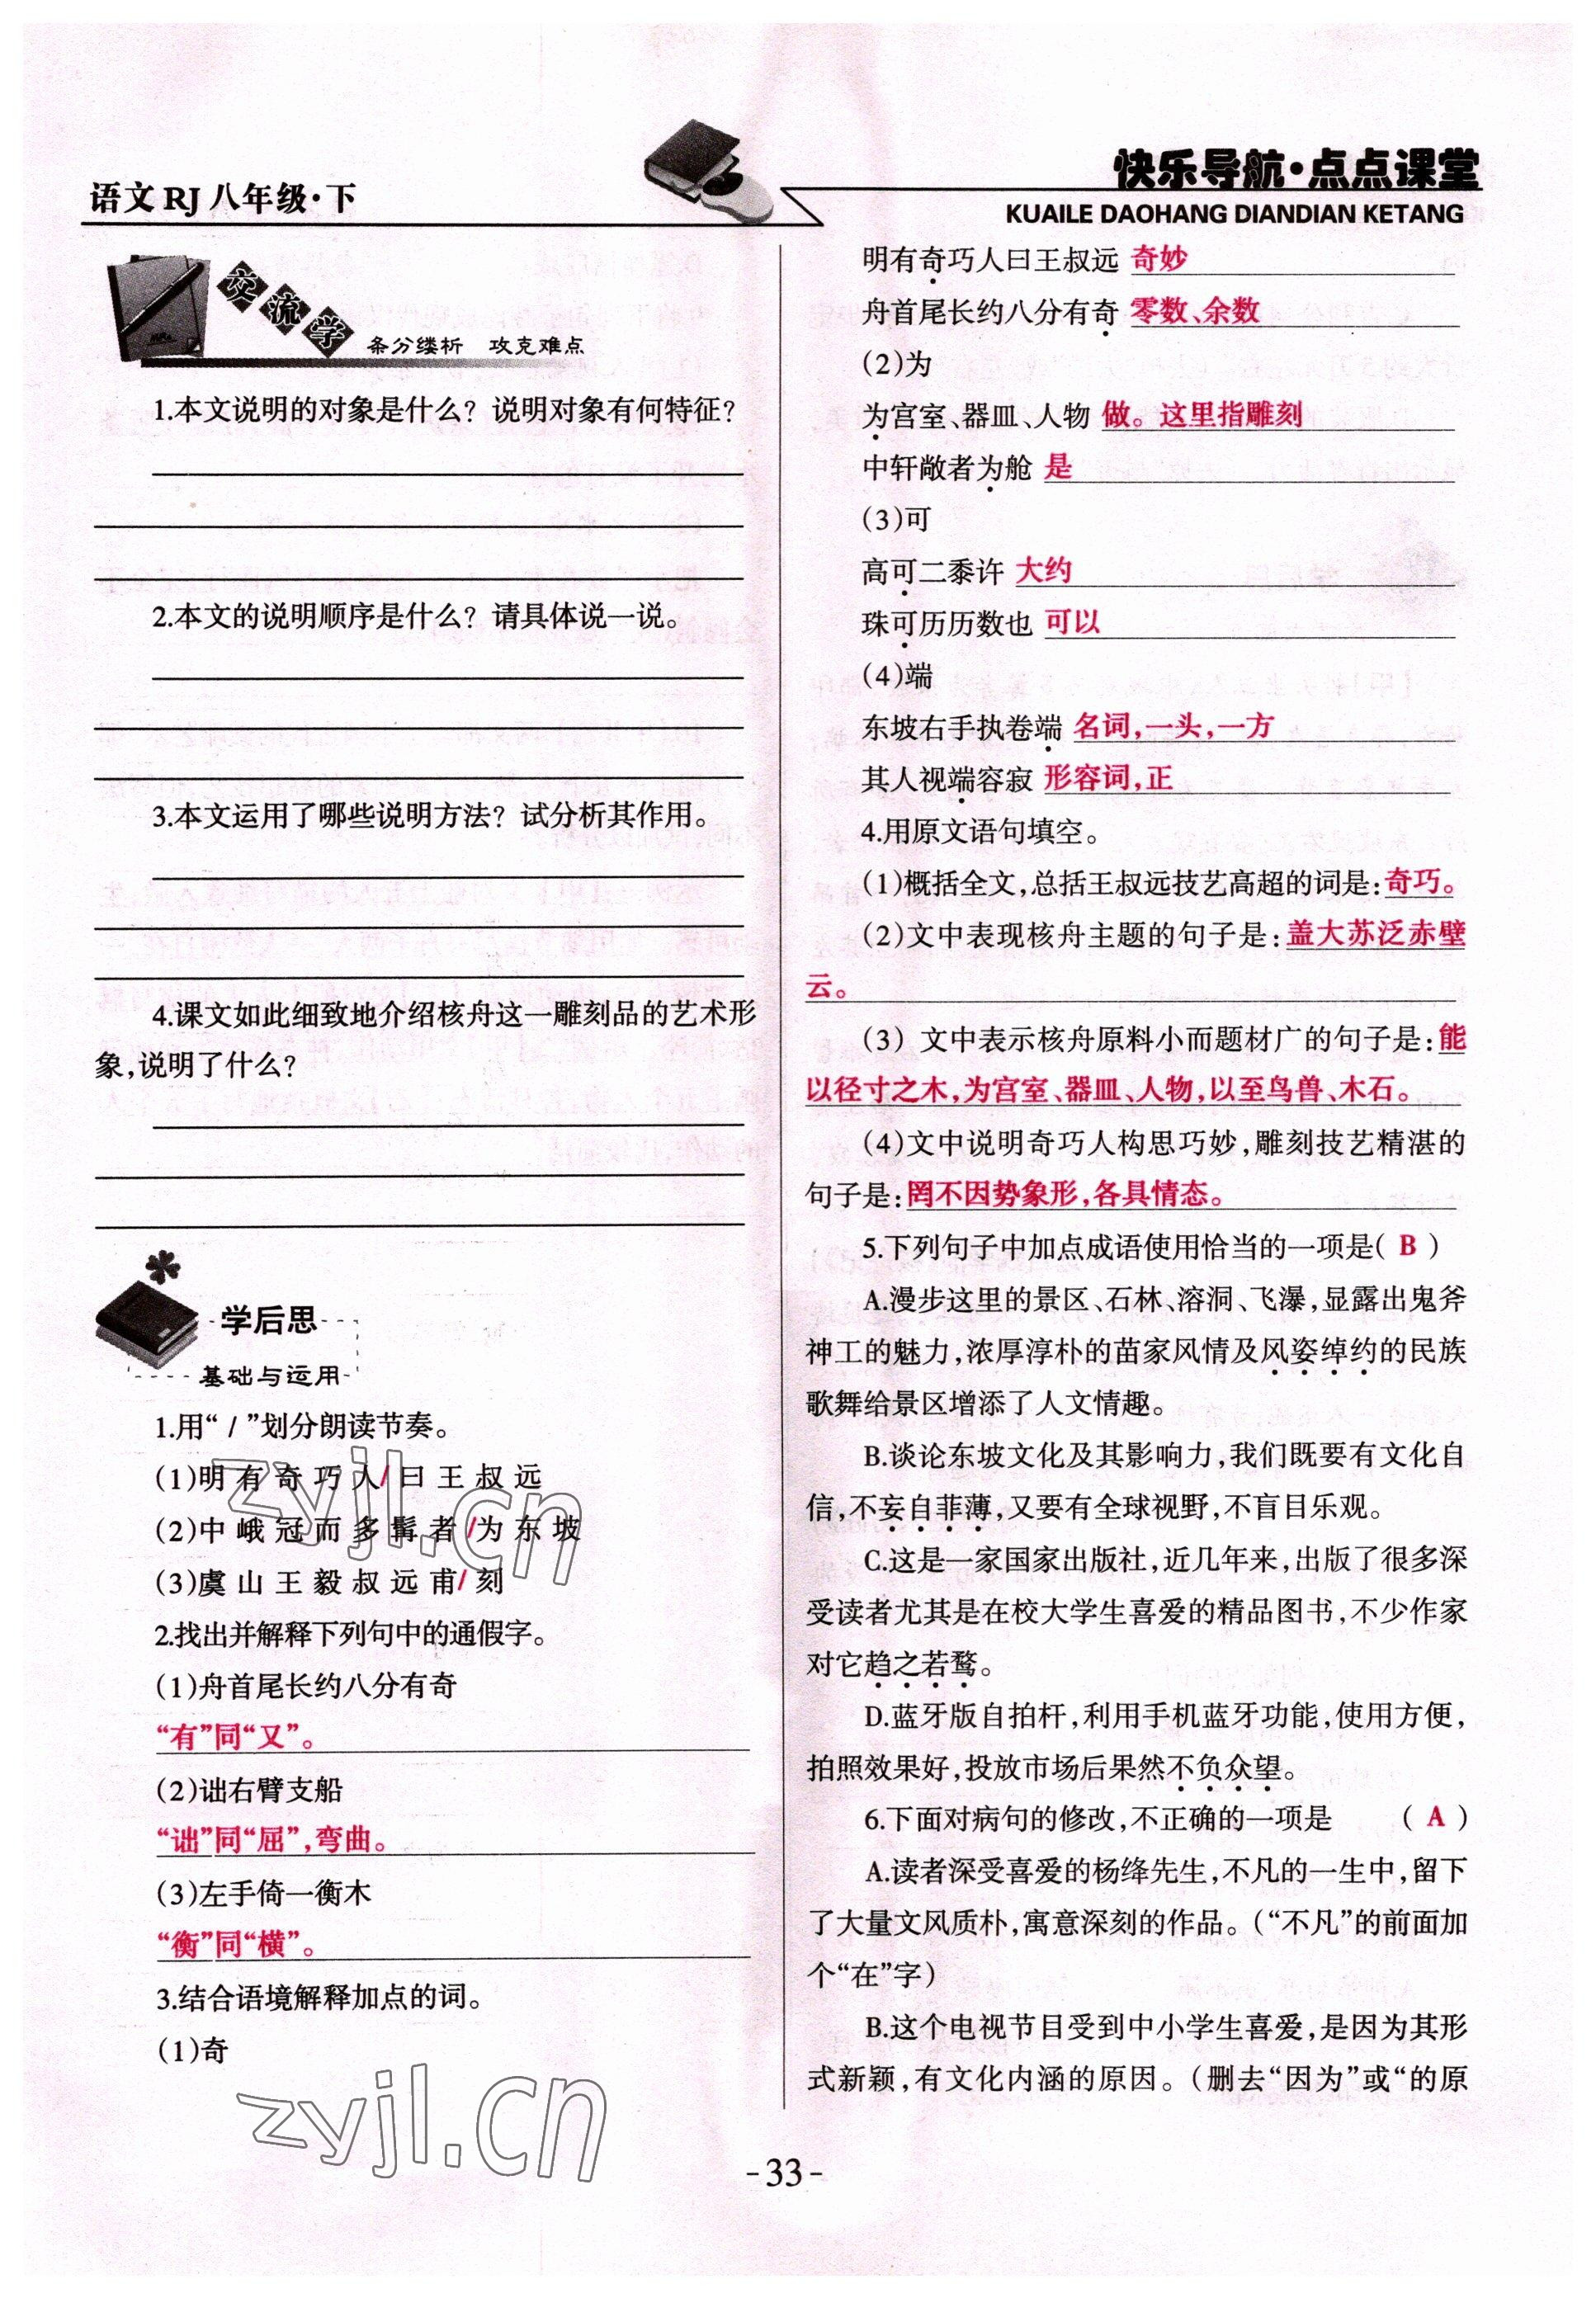 语文 RJ 八年级·下
快乐导航·点点课堂
KUAILE DAOHANG DIANDIAN KETANG
交流学
条分缕析 攻克难点
1.本文说明的对象是什么？说明对象有何特征？
2.本文的说明顺序是什么？请具体说一说。
3.本文运用了哪些说明方法？试分析其作用。
4.课文如此细致地介绍核舟这一雕刻品的艺术形
象，说明了什么？
学后思
基础与运用
1.用“/”划分朗读节奏。
(1)明 有 奇 巧 人/ 曰 王 叔 远
(2)中 峨 冠 而 多 髯 者 /为 东 坡
(3)虞 山 王 毅 叔 远 甫/ 刻
2.找出并解释下列句中的通假字。
(1)舟首尾长约八分有奇
“有”同“又”。
(2)诎右臂支船
“诎”同“屈”，弯曲。
(3)左手倚一衡木
“衡”同“横”。
3.结合语境解释加点的词。
(1)奇
明有奇巧人曰王叔远 奇妙
舟首尾长约八分有奇 零数、余数
(2)为
为宫室、器皿、人物 做。这里指雕刻
中轩敞者为舱 是
(3)可
高可二黍许 大约
珠可历历数也 可以
(4)端
东坡右手执卷端 名词，一头，一方
其人视端容寂 形容词，正
4.用原文语句填空。
(1)概括全文，总括王叔远技艺高超的词是：奇巧。
(2)文中表现核舟主题的句子是：盖大苏泛赤壁
云。
(3) 文中表示核舟原料小而题材广的句子是：能
以径寸之木，为宫室、器皿、人物，以至鸟兽、木石。
(4)文中说明奇巧人构思巧妙，雕刻技艺精湛的
句子是：罔不因势象形，各具情态。
5.下列句子中加点成语使用恰当的一项是( B )
A.漫步这里的景区、石林、溶洞、飞瀑，显露出鬼斧
神工的魅力，浓厚淳朴的苗家风情及风姿绰约的民族
歌舞给景区增添了人文情趣。
B.谈论东坡文化及其影响力，我们既要有文化自
信，不妄自菲薄，又要有全球视野，不盲目乐观。
C.这是一家国家出版社，近几年来，出版了很多深
受读者尤其是在校大学生喜爱的精品图书，不少作家
对它趋之若鹜。
D.蓝牙版自拍杆，利用手机蓝牙功能，使用方便，
拍照效果好，投放市场后果然不负众望。
6.下面对病句的修改，不正确的一项是 ( A )
A.读者深受喜爱的杨绛先生，不凡的一生中，留下
了大量文风质朴，寓意深刻的作品。（“不凡”的前面加
个“在”字）
B.这个电视节目受到中小学生喜爱，是因为其形
式新颖，有文化内涵的原因。（删去“因为”或“的原
zyjl.cn
zyjl.cn
-33-